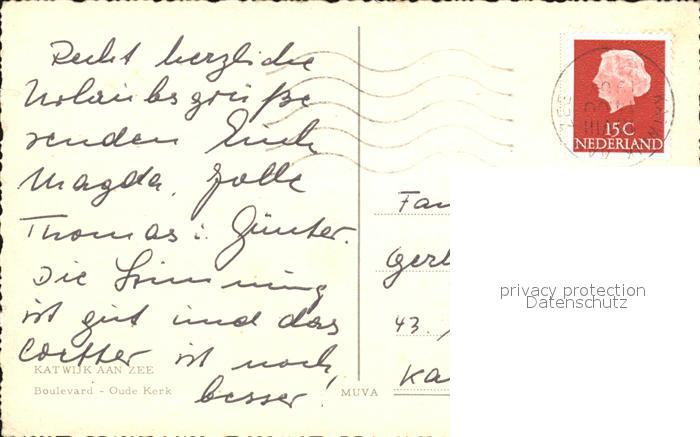 Recht herzliche
Urlaubsgrüße
senden Euch
Magda,
Thomas u. Günter.
Die Stimmung
ist gut und das
Wetter ist noch
besser!
KATWIJK AAN ZEE
Boulevard - Oude Kerk
MUVA
15C
NEDERLAND
Fam
43.
Ka
privacy protection
Datenschutz